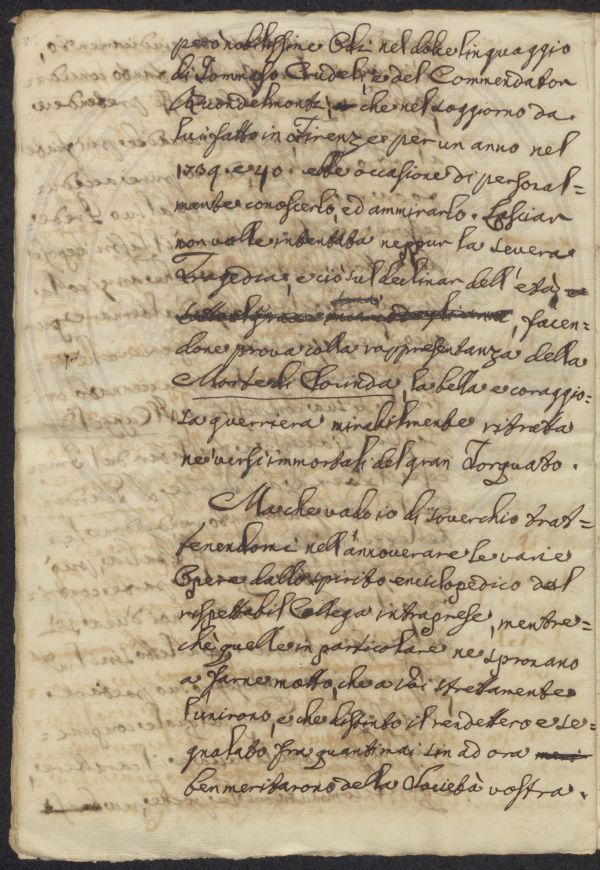 però nobilissime Odi nel dolce linguaggio
di Tommaso Crudeli, e del Commendator
Buondelmonti, che nel soggiorno da
lui fatto in Firenze per un anno nel
1739. e 40. ebbe occasione di personal=
mente conoscerlo, ed ammirarlo. Lasciar
non volle intentata neppur la severa
Tragedia, e ciò sul declinar dell'età,
facen=
done prova colla rappresentanza della
Morte di Clorinda, la bella e coraggio=
sa guerriera mirabilmente ritratta
ne' versi immortali del gran Torquato.
Ma che vado io di soverchio trat=
tenendomi nell'annoverare le varie
Opere dallo spirito enciclopedico del
rispettabil Collega intraprese, mentre=
chè quelle in particolare ne spronano
a farne motto, che a Voi strettamente
l'unirono, e che distinto il rendettero e se=
gnalato fra quanti mai sin ad ora
ben meritarono della Società vostra.